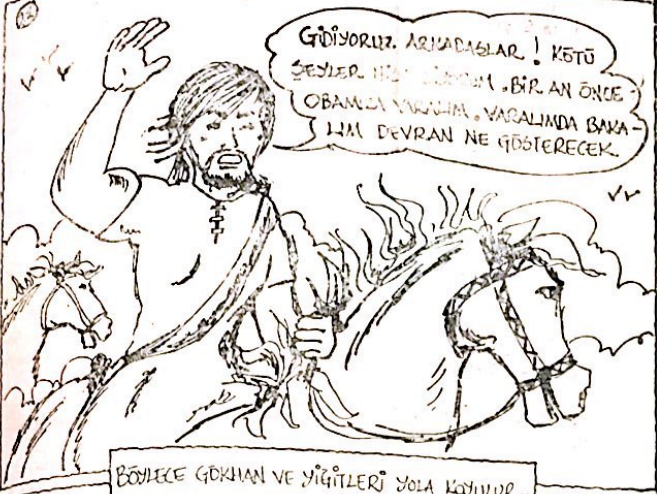 GİDİYORUZ ARKADAŞLAR! KÖTÜ
ŞEYLER .BİR AN ÖNCE
OBAMIZA VARALIM. VARALIMDA BAKA-
LIM DEVRAN NE GÖSTERECEK.
BÖYLECE GÖKHAN VE YİĞİTLERİ YOLA KOYULUR...